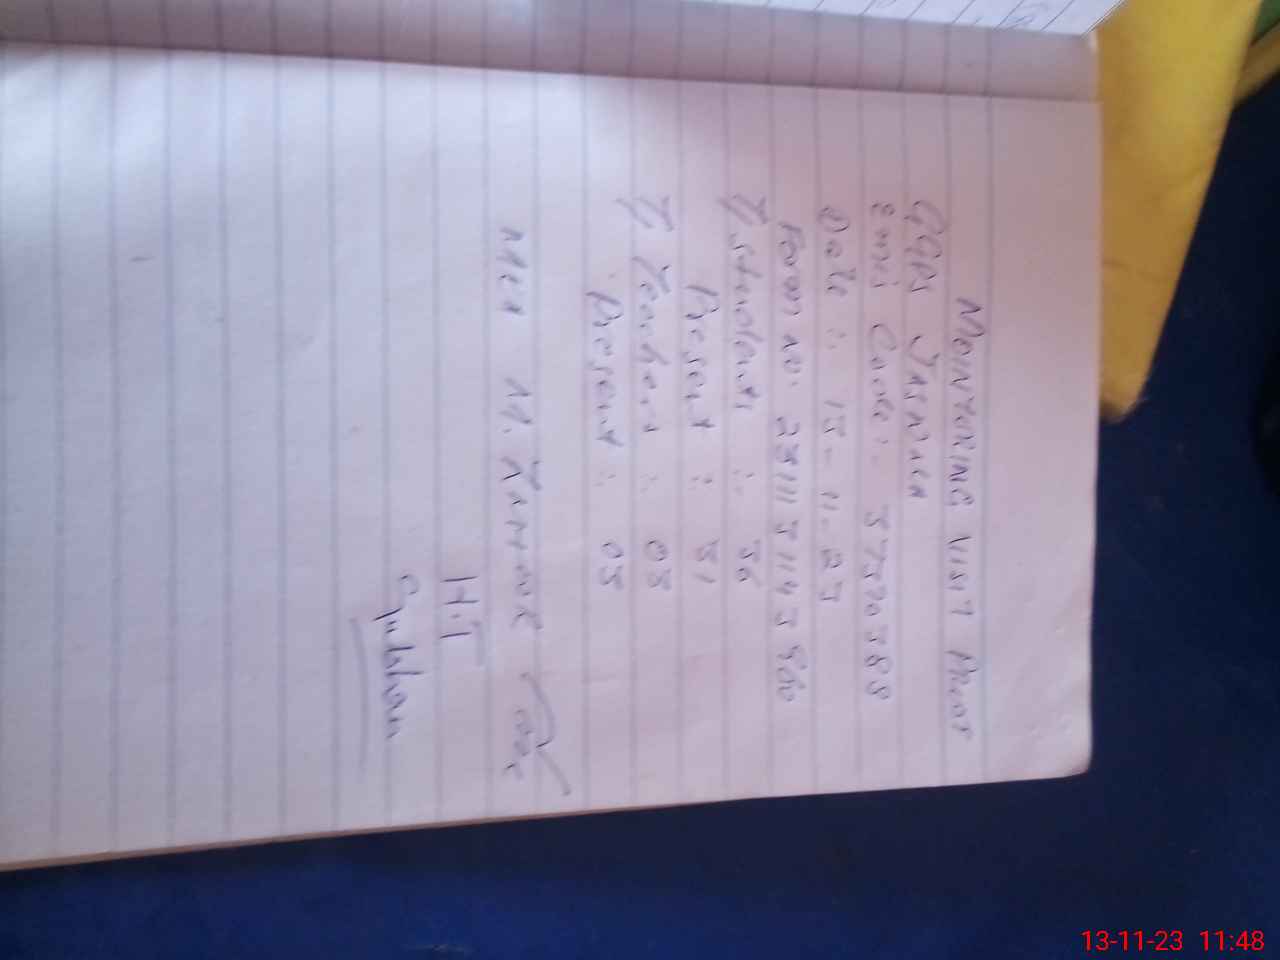 MOINTERING VISIT PROOF
GGPS JASRACA
Emis Code :- 37570388
Date : 13-11-23
Form no. 231113114
T/Students : 36
Present : 31
T/Teachers : 03
Present : 03
MEA M.
H.T
13-11-23 11:48